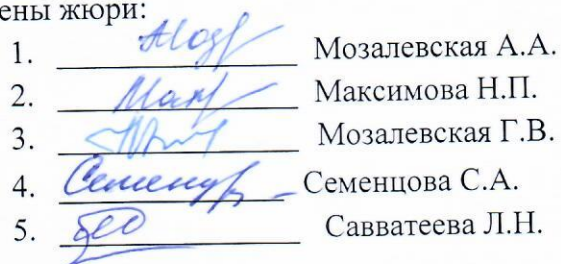 ены жюри:
1. Мозалевская А.А.
2. Максимова Н.П.
3. Мозалевская Г.В.
4. Семенцова С.А.
5. Савватеева Л.Н.